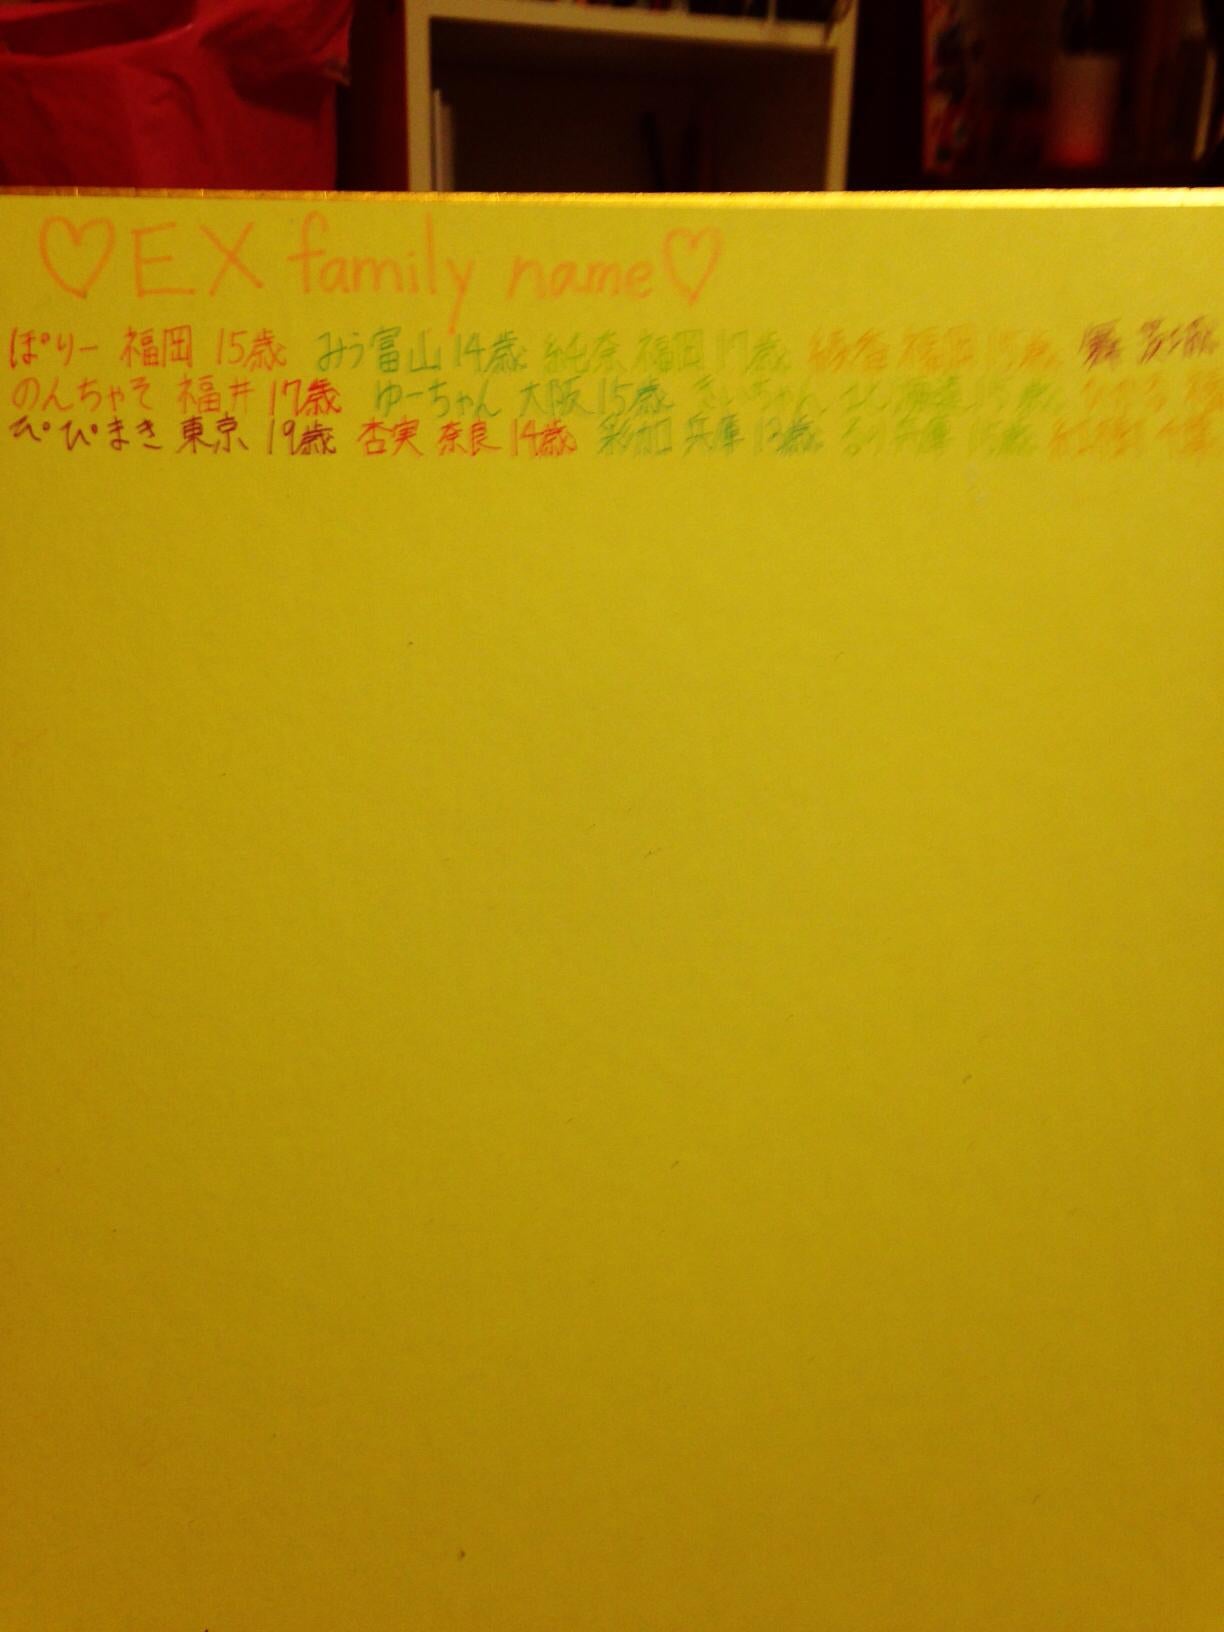 ♡EX family name♡
ぽりー 福岡 15歳 みう 富山 14歳 純奈 福岡 17歳 綾香 福岡 15歳 舞
のんちゃそ 福井 17歳 ゆーちゃん 大阪 15歳 きいちゃん 北海道 15歳
ぴぴまき 東京 19歳 杏実 奈良 14歳 彩加 兵庫 13歳 るり 兵庫 千葉